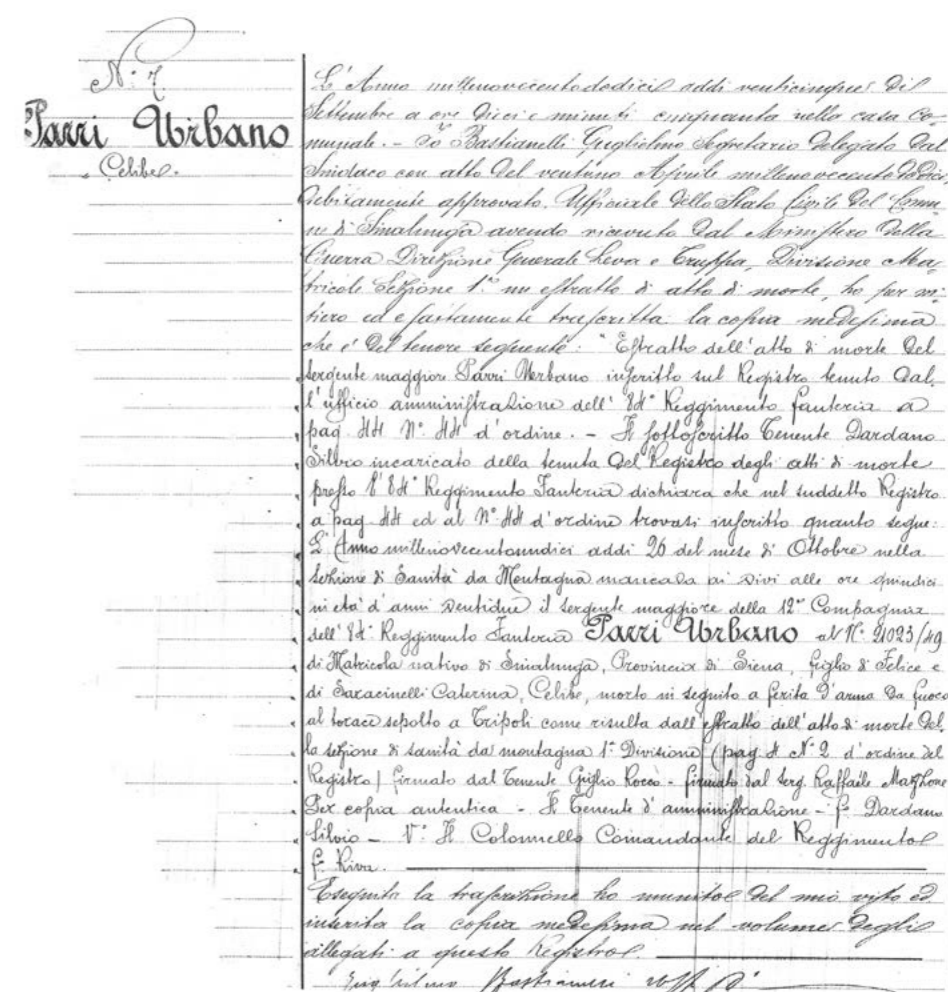 N.° 7
Parri Urbano
Celibe.
L'Anno millenovecentododici addi venticinque del
Settembre a ore dieci e minuti cinquanta nella casa Co-
munale. - Io Bastianelli Guglielmo Segretario delegato dal
Sindaco con atto del ventuno Aprile millenovecentododici,
debitamente approvato. Ufficiale dello Stato Civile del Comu-
ne di Sinalunga avendo ricevuto dal Ministero della
Guerra Direzione Generale Leva e Truppa, Divisione Ma-
tricole Sezione 1ª un estratto di atto di morte, ho per in-
tiero ed esattamente trascritta la copia medesima
che è del tenore seguente: "Estratto dell'atto di morte del
sergente maggiore Parri Urbano inscritto sul Registro tenuto dal-
l'ufficio amministrazione dell' 84° Reggimento fanteria a
pag. 44 N° 44 d'ordine. - Il sottoscritto Tenente Dardano
Silvio incaricato della tenuta del Registro degli atti di morte
presso l'84° Reggimento Fanteria dichiara che nel suddetto Registro
a pag. 44 ed al N° 44 d'ordine trovasi inscritto quanto segue:
L'Anno millenovecentoundici addi 26 del mese di Ottobre nella
Sezione di Sanità da Montagna mancava ai vivi alle ore quindici
in età d'anni ventidue il sergente maggiore della 12ª Compagnia
dell' 84° Reggimento Fanteria Parri Urbano al N° 21023/49
di Matricola nativo di Sinalunga, Provincia di Siena, figlio di Felice e
di Saracinelli Caterina, Celibe, morto in seguito a ferita d'arma da fuoco
al torace sepolto a Tripoli come risulta dall'estratto dell'atto di morte del-
la sezione di sanità da montagna 1ª Divisione (pag. 4 N° 2 d'ordine del
Registro) firmato dal Tenente Giglio Rocco - firmato dal Serg. Raffaile Mazzone
Per copia autentica - Il Tenente d'amministrazione - f° Dardano
Silvio - V° Il Colonnello Comandante del Reggimento
f° Riva.
Eseguita la trascrizione ho munito del mio visto ed
inserita la copia medesima nel volume degli
allegati a questo Registro.
Guglielmo Bastianelli